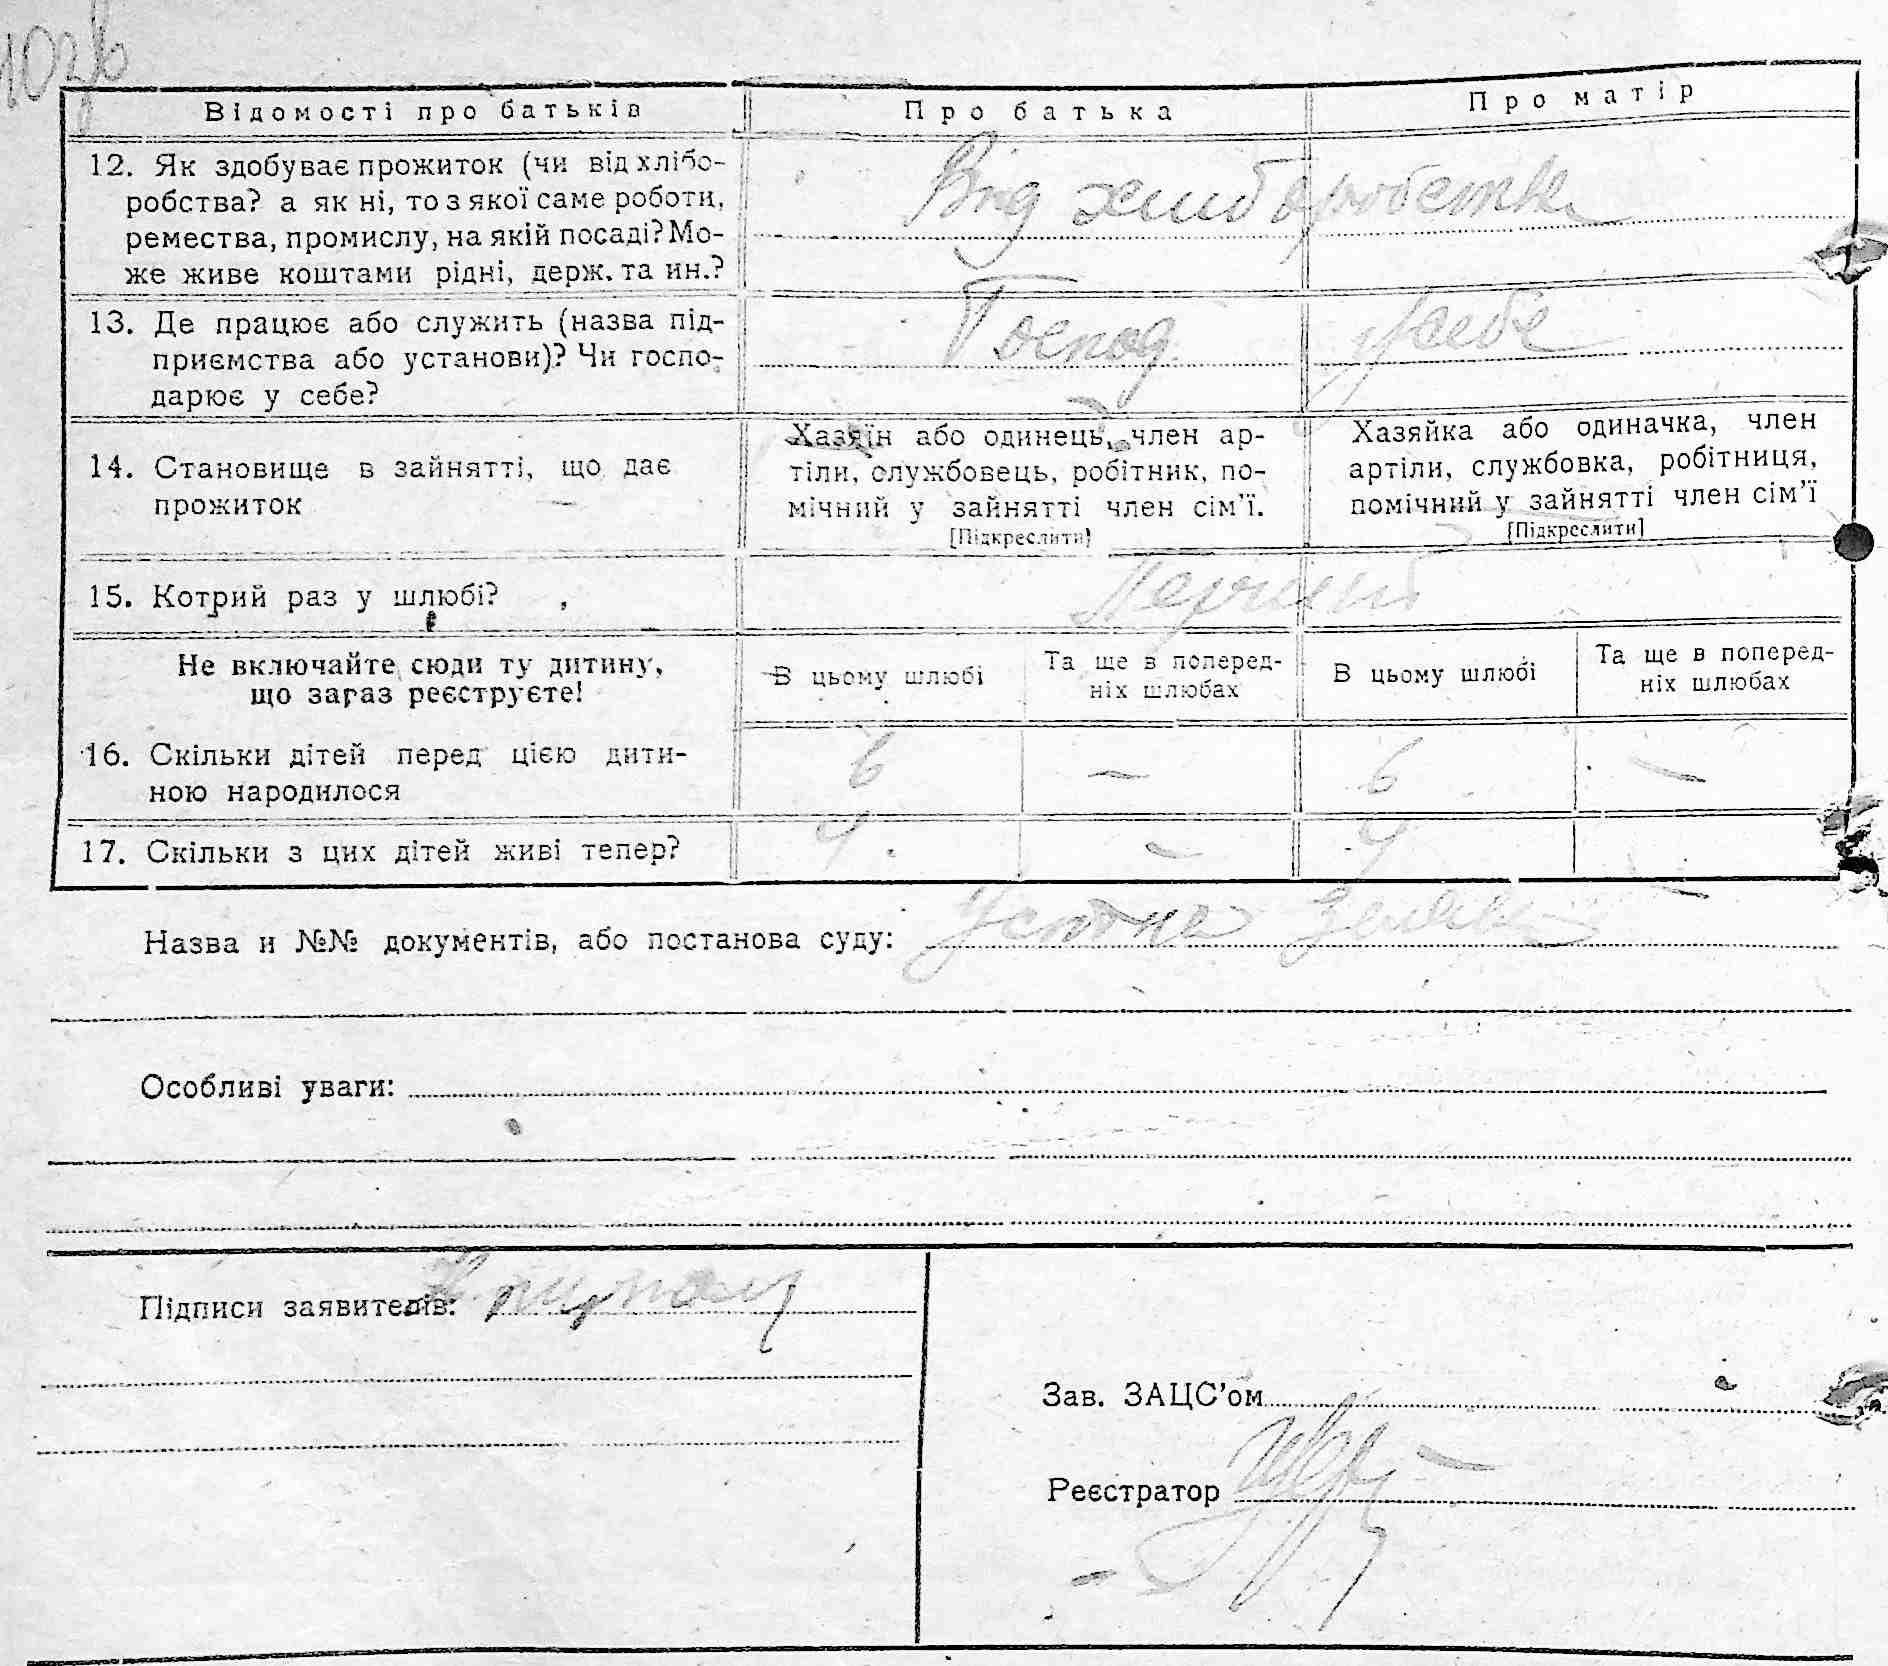 Відомості про батьків
Про батька
Про матір
12. Як здобуває прожиток (чи від хлібо-
робства? а як ні, то з якої саме роботи,
ремества, промислу, на якій посаді? Мо-
же живе коштами рідні, держ. та ин.?
Від хліборобства
13. Де працює або служить (назва під-
приємства або установи)? Чи госпо-
дарює у себе?
Господ. у себе
14. Становище в зайнятті, що дає
прожиток
Хазяїн або одинець, член ар-
тіли, службовець, робітник, по-
мічний у зайнятті член сім'ї.
[Підкреслити]
Хазяйка або одиначка, член
артіли, службовка, робітниця,
помічний у зайнятті член сім'ї
[Підкреслити]
15. Котрий раз у шлюбі?
Не включайте сюди ту дитину,
що зараз реєструєте!
В цьому шлюбі
Та ще в поперед-
ніх шлюбах
В цьому шлюбі
Та ще в поперед-
ніх шлюбах
16. Скільки дітей перед цією дити-
ною народилося
6 — 6 —
17. Скільки з цих дітей живі тепер?
4 — 4 —
Назва и №№ документів, або постанова суду: Устна
Особливі уваги:
Підписи заявителів:
Зав. ЗАЦС'ом
Реєстратор